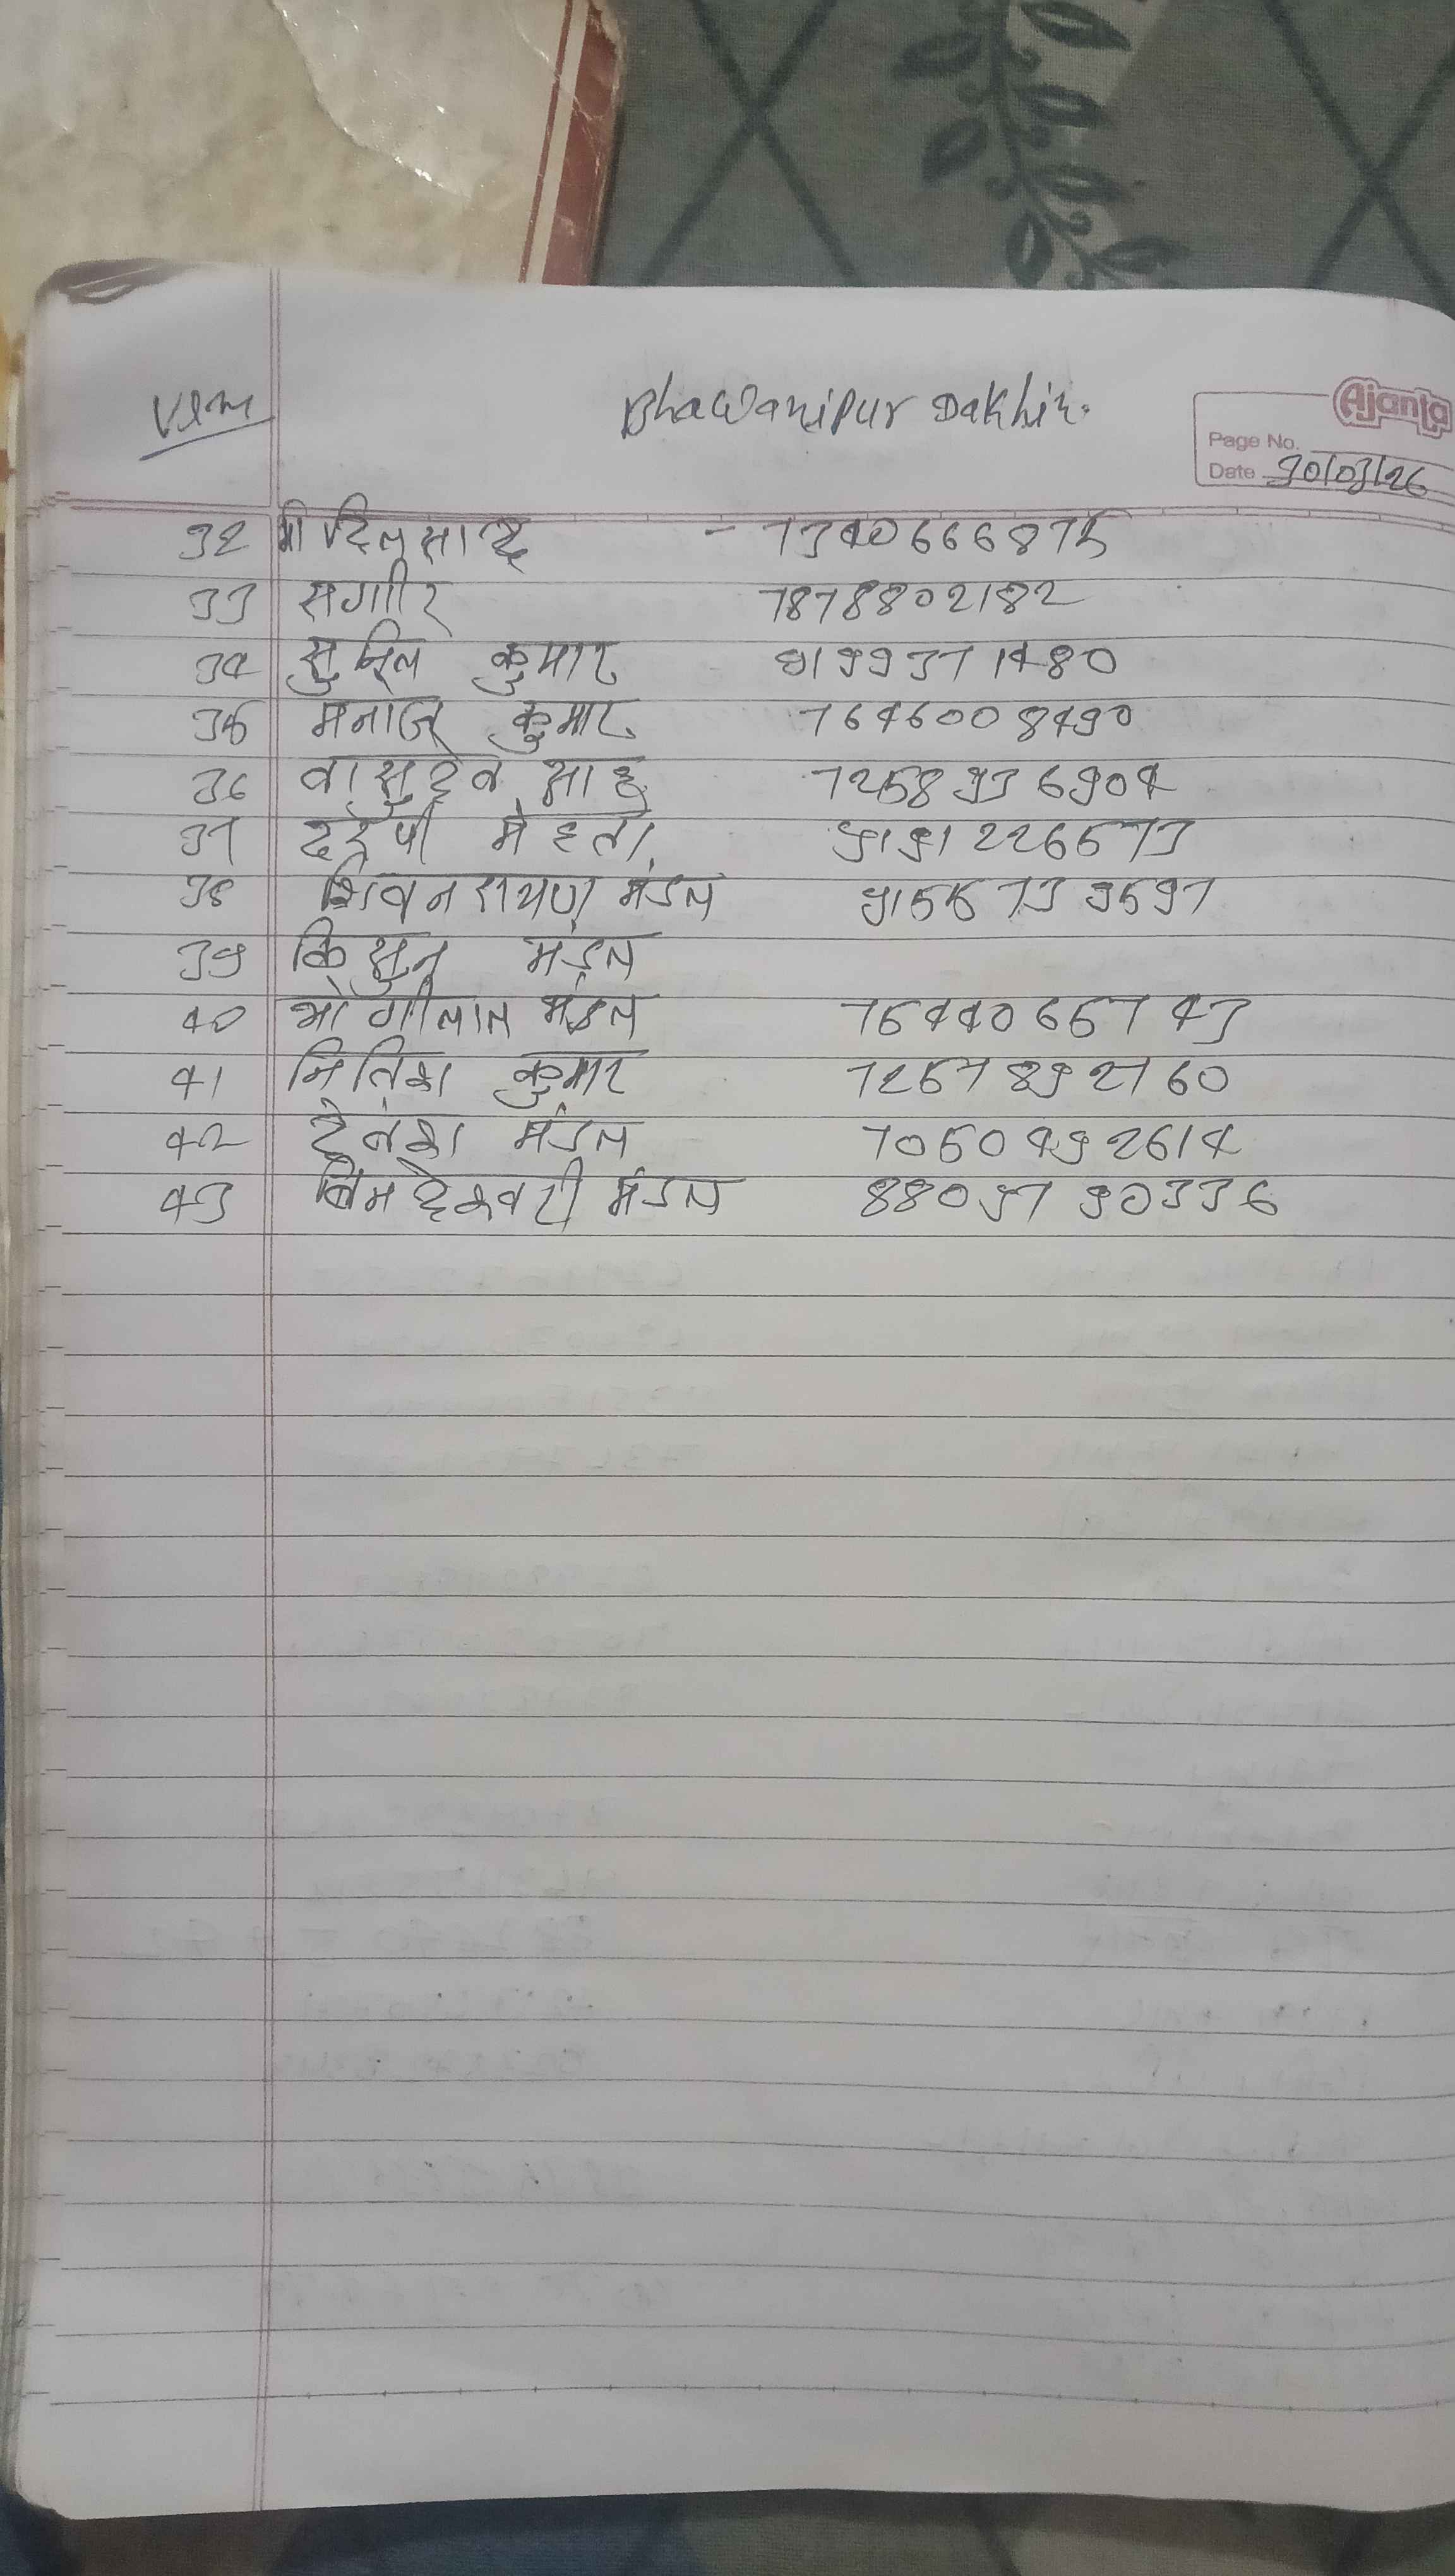 VRM Bhawanipur Dakhin.
Ajanta
Page No.
Date 30/03/26
32 मो दिलसाद - 7340666875
33 सगीर 7878802182
34 सुनिल कुमार 9199371480
35 मनोज कुमार 7646008490
36 वासुदेव साह 7258936904
37 मेहता 9191226573
38 शिवनरायण मंडल 9155739597
39 किसुन मंडल
40 भोगीलाल मंडल 7644066743
41 नितिश कुमार 7257892760
42 मंडल 7050492614
43 मंडल 88097 90336